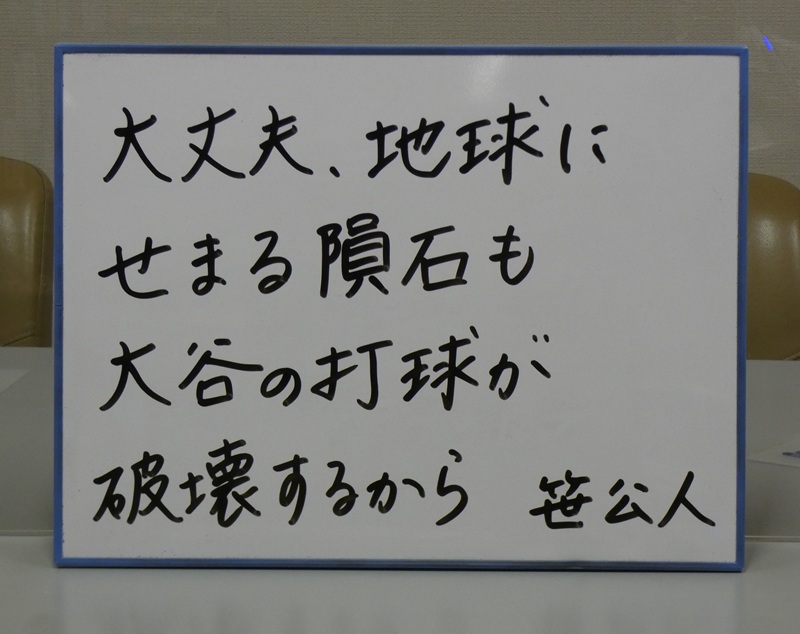 大丈夫、地球に
せまる隕石も
大谷の打球が
破壊するから 笹公人